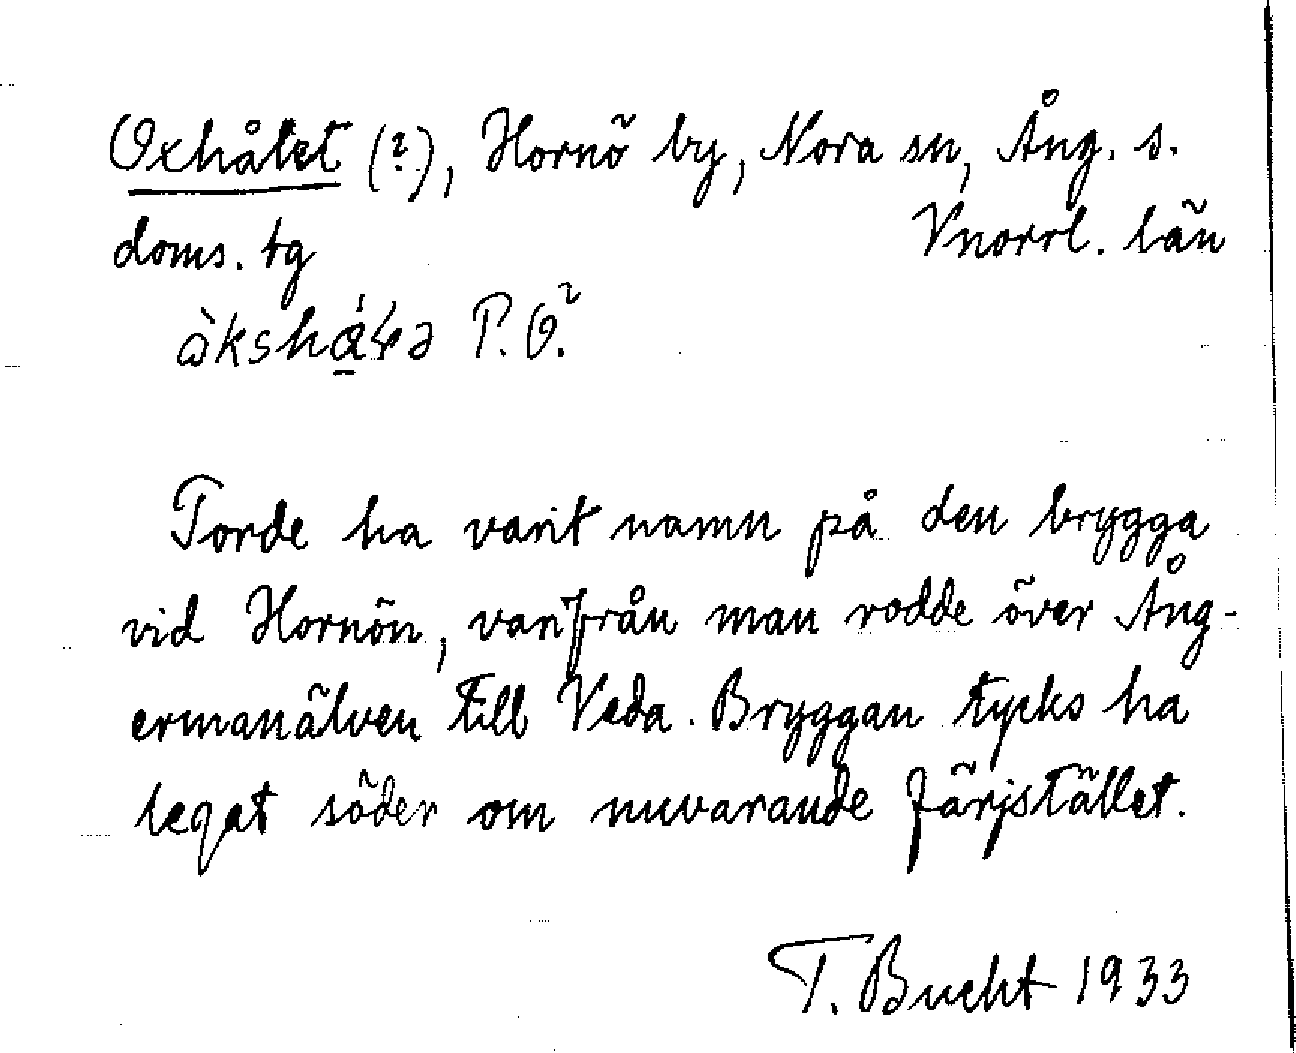 Oxhålet (?), Hornö by, Nora sn, Ång. s.
doms. tg Vnorrl. län
P. O.²
Torde ha varit namn på den brygga
vid Hornön, varifrån man rodde över Ång-
ermanälven till Veda. Bryggan tycks ha
legat söder om nuvarande färjstället.
T. Bucht 1933